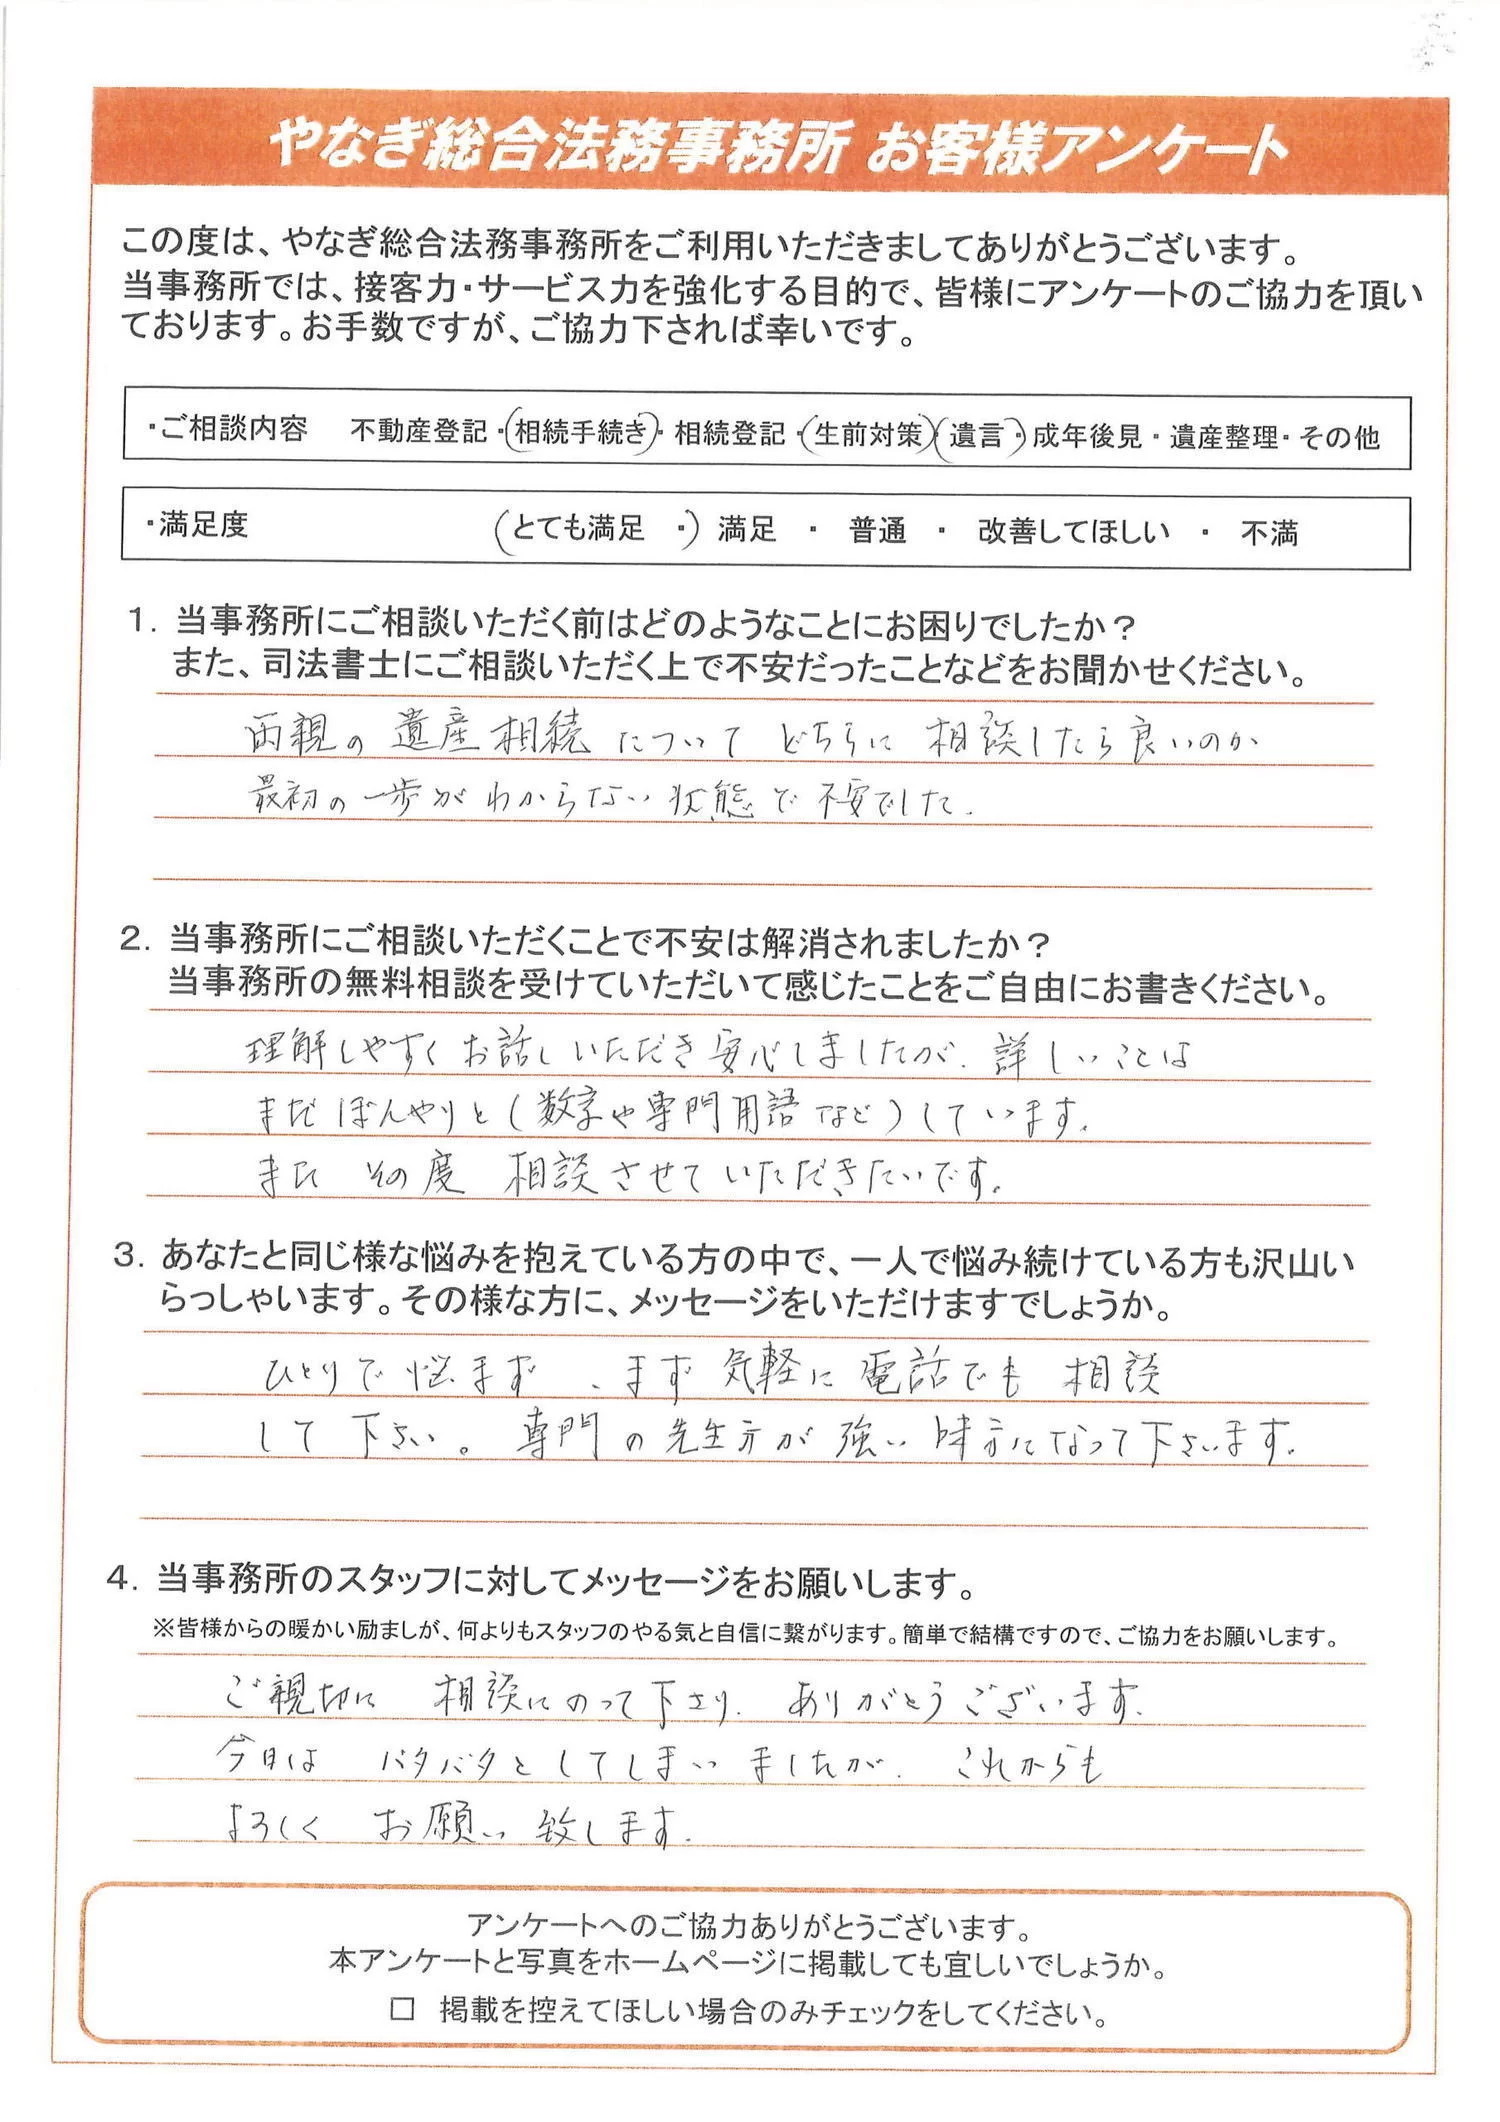 やなぎ総合法務事務所 お客様アンケート
この度は、やなぎ総合法務事務所をご利用いただきましてありがとうございます。
当事務所では、接客力・サービス力を強化する目的で、皆様にアンケートのご協力を頂い
ております。お手数ですが、ご協力下されば幸いです。
・ご相談内容 不動産登記・(相続手続き)・相続登記・(生前対策)・(遺言・)成年後見・遺産整理・その他
・満足度 (とても満足 ・) 満足 ・ 普通 ・ 改善してほしい ・ 不満
1. 当事務所にご相談いただく前はどのようなことにお困りでしたか?
また、司法書士にご相談いただく上で不安だったことなどをお聞かせください。
両親の遺産相続についてどちらに相談したら良いのか
最初の一歩がわからない状態で不安でした.
2. 当事務所にご相談いただくことで不安は解消されましたか?
当事務所の無料相談を受けていただいて感じたことをご自由にお書きください。
理解しやすくお話しいただき安心しましたが、詳しいことは
まだぼんやりと(数字や専門用語など)しています。
また その度 相談させていただきたいです。
3. あなたと同じ様な悩みを抱えている方の中で、一人で悩み続けている方も沢山い
らっしゃいます。その様な方に、メッセージをいただけますでしょうか。
ひとりで悩まず、まず気軽に電話でも相談
して下さい。専門の先生方が強い味方になって下さいます.
4. 当事務所のスタッフに対してメッセージをお願いします。
※皆様からの暖かい励ましが、何よりもスタッフのやる気と自信に繋がります。簡単で結構ですので、ご協力をお願いします。
ご親切に 相談にのって下さり、ありがとうございます.
今日は バタバタとしてしまいましたが、これからも
よろしく お願い致します.
アンケートへのご協力ありがとうございます。
本アンケートと写真をホームページに掲載しても宜しいでしょうか。
□ 掲載を控えてほしい場合のみチェックをしてください。